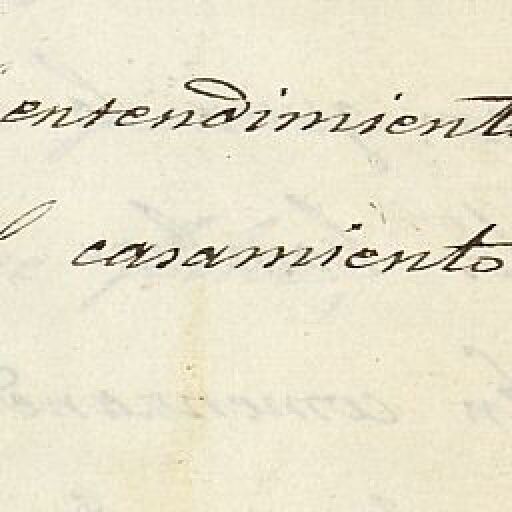 entendimiento
casamiento